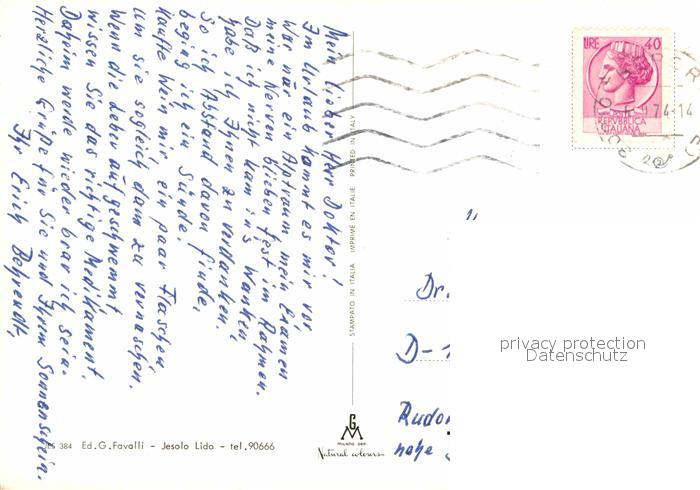 Mein lieber Herr Doktor!
Im Urlaub kommt es mir vor
War nur ein Alptraum mein Examen
meine Nerven blieben fest im Rahmen.
Daß ich nicht kam in's Wanken
habe ich Ihnen zu verdanken.
So ich Abstand davon finde,
begig ich ein Sünde.
Kaufte Wein mir ein paar Flaschen
um sie sogleich dann zu vernaschen.
Wenn die Leber aufgeschwemmt
wissen Sie das richtige Medikament.
Daheim werde wieder brav ich sein.
Herzliche Grüße für Sie und Ihrem Sonnenschein.
Ihr Erich Behrendt,
STAMPATO IN ITALIA IMPRIMÉ EN ITALIE PRINTED IN ITALY
LIRE 40
REPVBBLICA
ITALIANA
74-14
Dr.
D-
privacy protection
Datenschutz
nahe
384 Ed. G. Favalli - Jesolo Lido - tel. 90666
G
M
MILANO
Natural colours